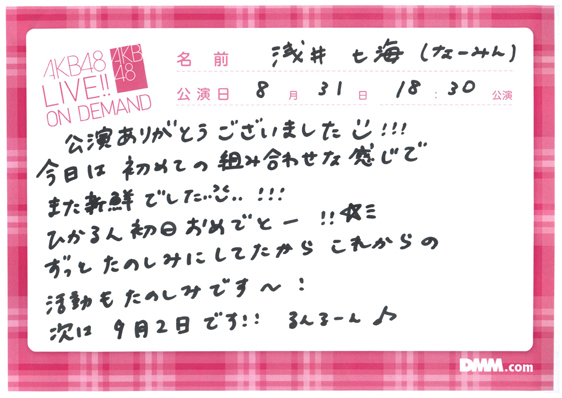 AKB48
LIVE!!
ON DEMAND
AKB
48
名前 浅井七海(なーみん)
公演日 8月31日 18:30公演
公演ありがとうございました!!!
今日は初めての組み合わせな感じで
また新鮮でした...!!!
ひかるん初日おめでとー!!☆ミ
ずっとたのしみにしてたからこれからの
活動もたのしみです〜!
次は9月2日です!!るんるーん♪
DMM.com